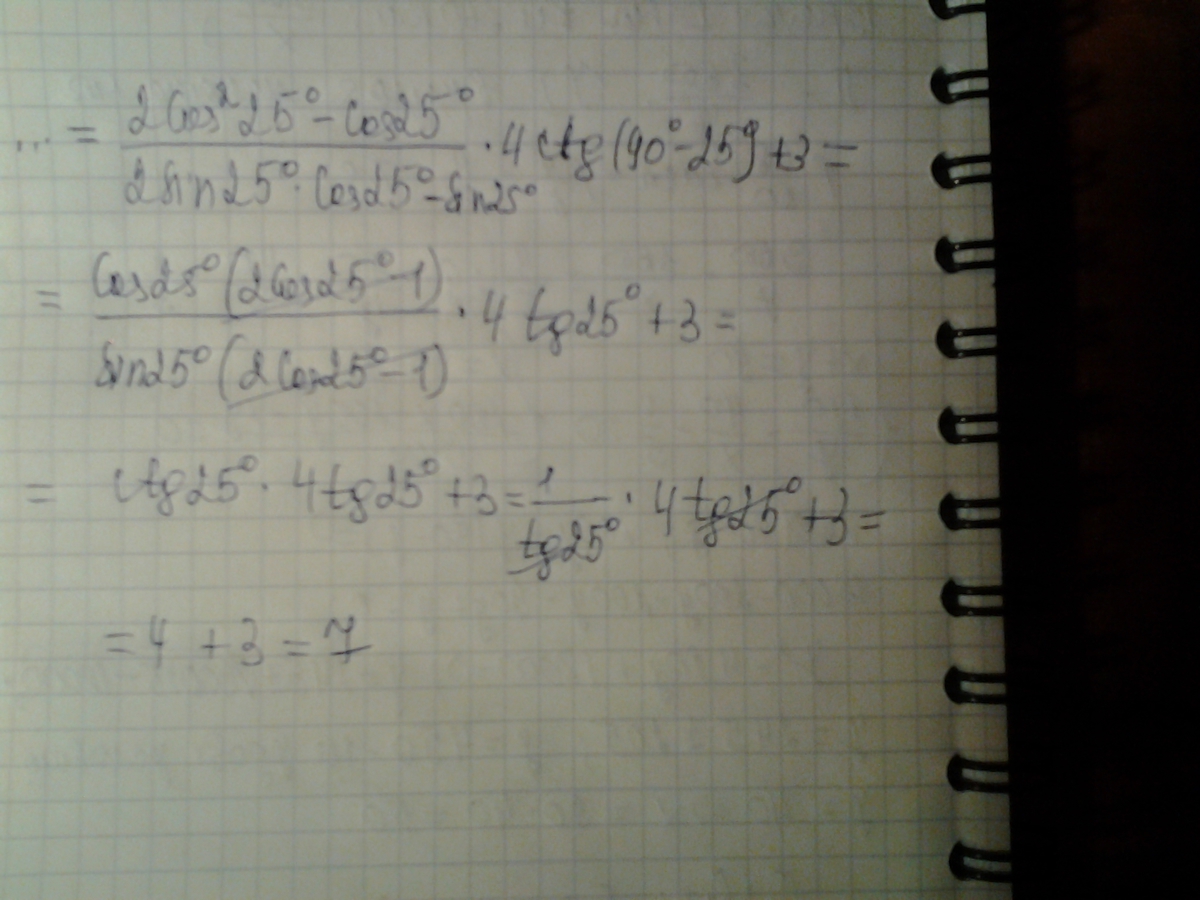 ... = (2Cos²25° - Cos25°) / (2Sin25° · Cos25° - Sin25°) · 4 ctg (90° - 25°) + 3 =
= Cos25° (2Cos25° - 1) / Sin25° (2Cos25° - 1) · 4 tg25° + 3 =
= ctg25° · 4 tg25° + 3 = 1 / tg25° · 4 tg25° + 3 =
= 4 + 3 = 7